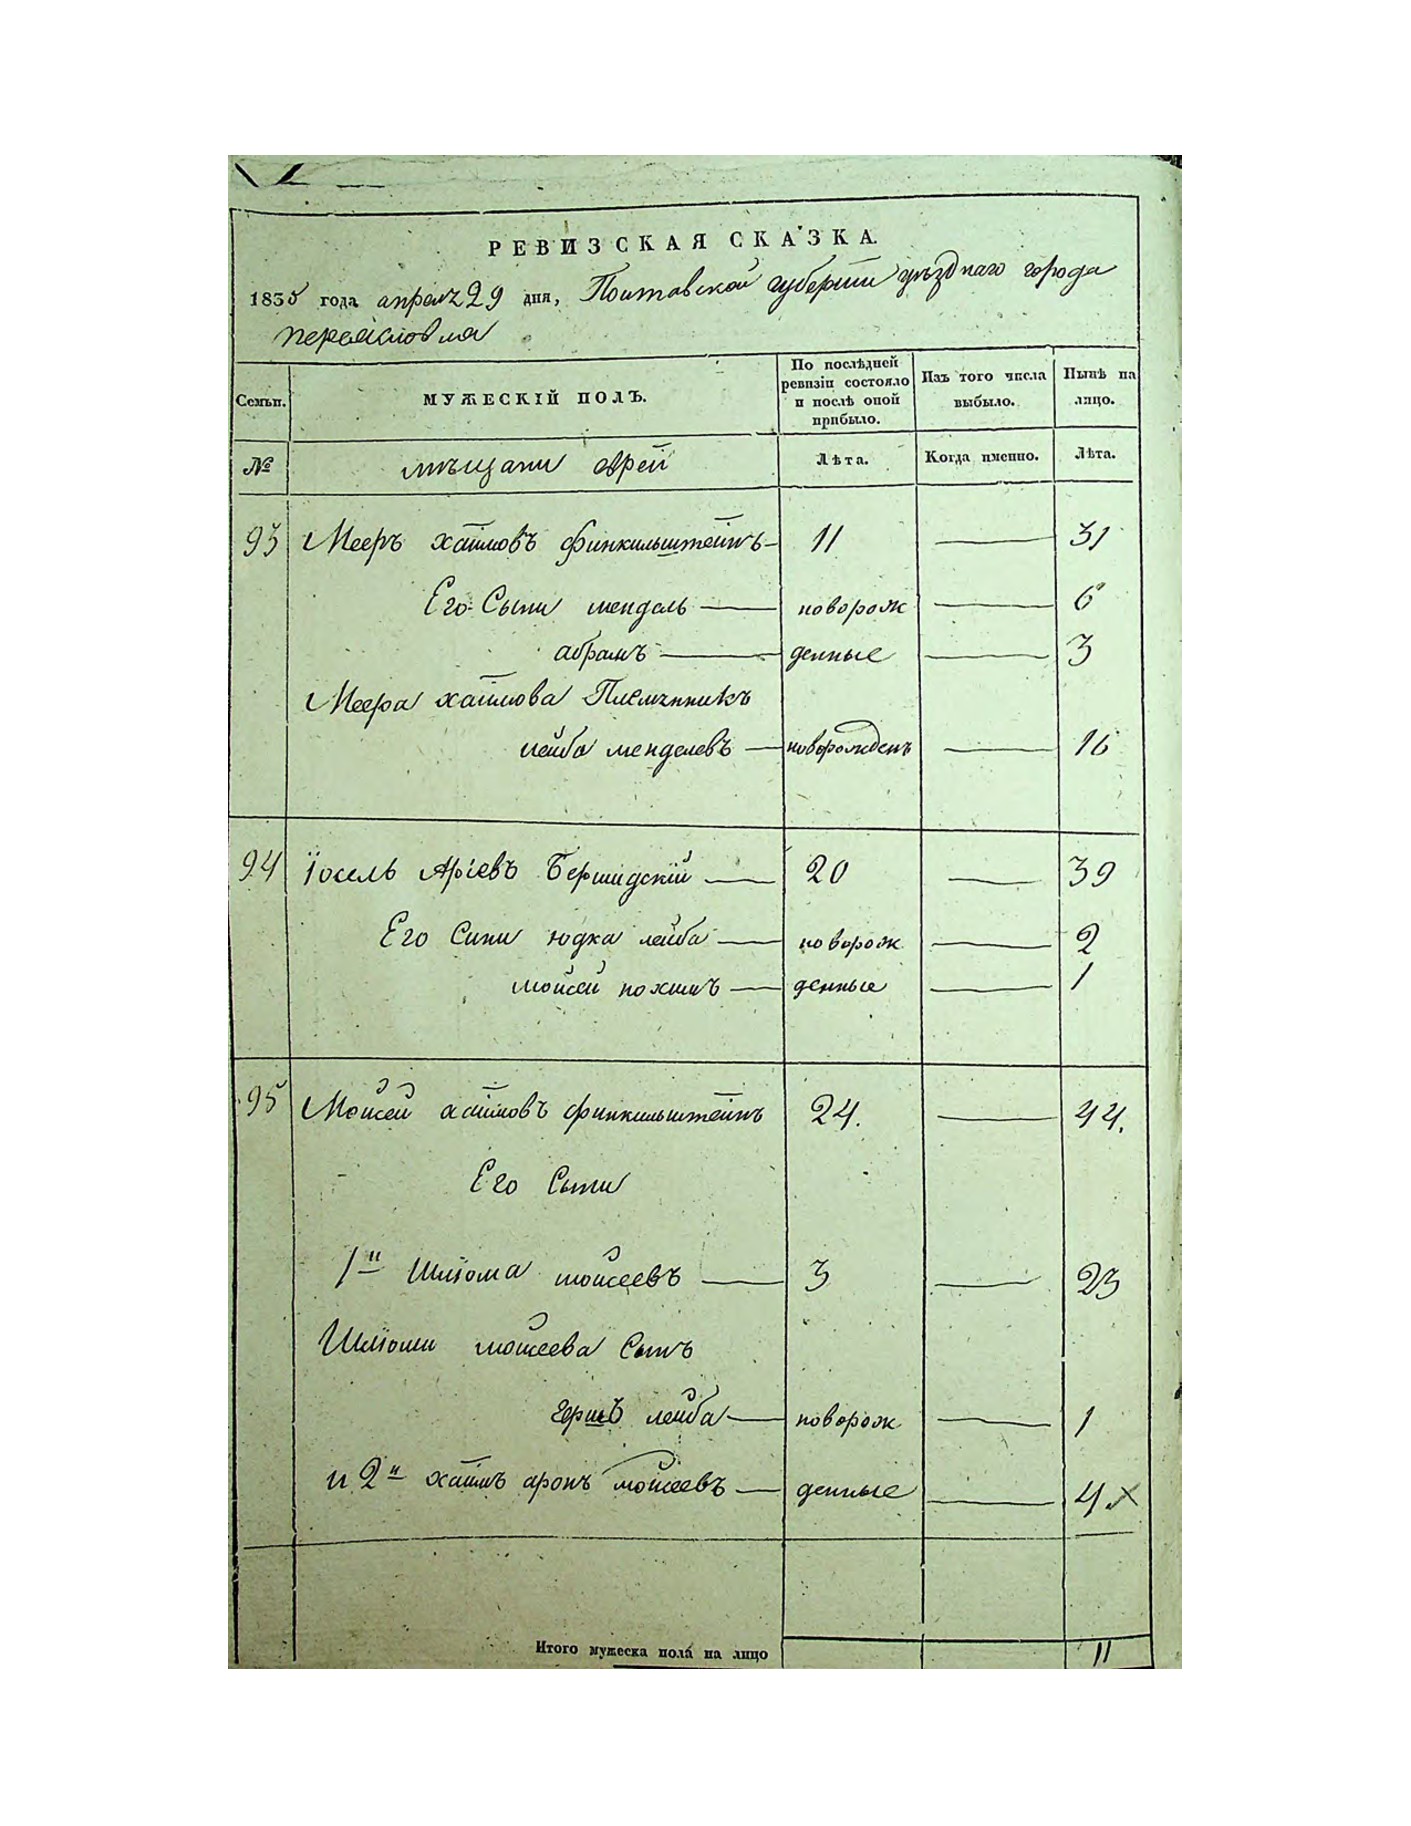 РЕВИЗСКАЯ СКАЗКА.
1835 года апреля 29 дня, Полтавской губернии уѣзднаго города
Переяславля
Семьи. МУЖЕСКІЙ ПОЛЪ. По послѣдней ревизіи состояло и послѣ оной прибыло. Изъ того числа выбыло. Нынѣ на лицо.
№ мѣщани евреи Лѣта. Когда именно. Лѣта.
93 Мееръ хаимовъ финкильштейнъ 11 — 31
Его Сыни мендель — новорож — 6
абрамъ — денные — 3
Меера хаимова Племянникъ
лейба менделевъ — новорожденъ — 16
94 Іосель Аріевъ Бершидскій — 20 — 39
Его Сини юдка лейба — новорож — 2
мойсей нохимъ — денные — 1
95 Мойсей хаимовъ финкильштейнъ 24. — 44.
Его Сыни
1й Шліома мойсеевъ — 3 — 23
Шліоми мойсеева Сынъ
гершъ лейба — новорож — 1
и 2й хаимъ аронъ мойсеевъ — денные — 4
Итого мужеска пола на лицо 11